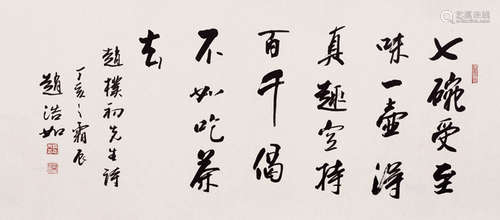 七碗受至
味一壶得
真趣空持
百千偈
不如吃茶
去
趙樸初先生詩
丁亥之霜辰
趙浩如